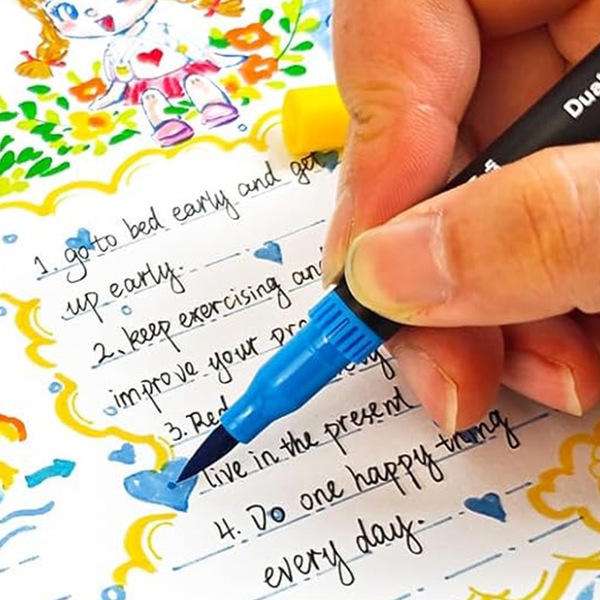 Dual
1. go to bed early and get
up early.
2. keep exercising and
improve your
3. Red
live in the present
4. Do one happy thing
every day.